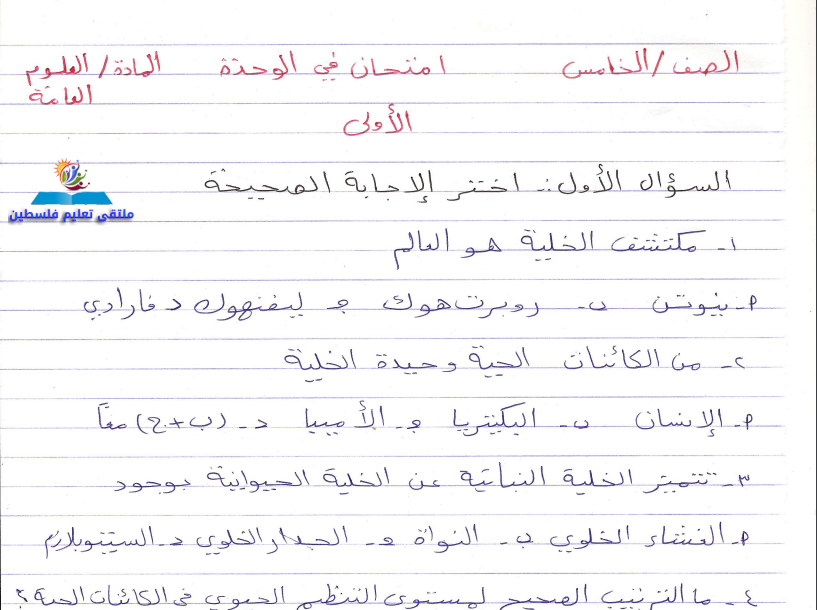 الصف / الخامس امتحان في الوحدة المادة / العلوم
العامة
الأولى
السؤال الأول:- اختر الإجابة الصحيحة
ملتقى تعليم فلسطين
١- مكتشف الخلية هو العالم
م- نيوتن ب- روبرت هوك ج- ليفنهوك د فارادي
٢- من الكائنات الحية وحيدة الخلية
م- الإنسان ب- البكتيريا ج- الأميبا د- (ب+ج) معاً
٣- تتميز الخلية النباتية عن الخلية الحيوانية بوجود
م- الغشاء الخلوي ب- النواة ج- الجدار الخلوي د- السيتوبلازم
٤- ما الترتيب الصحيح لمستوى التنظيم الحيوي في الكائنات الحية؟